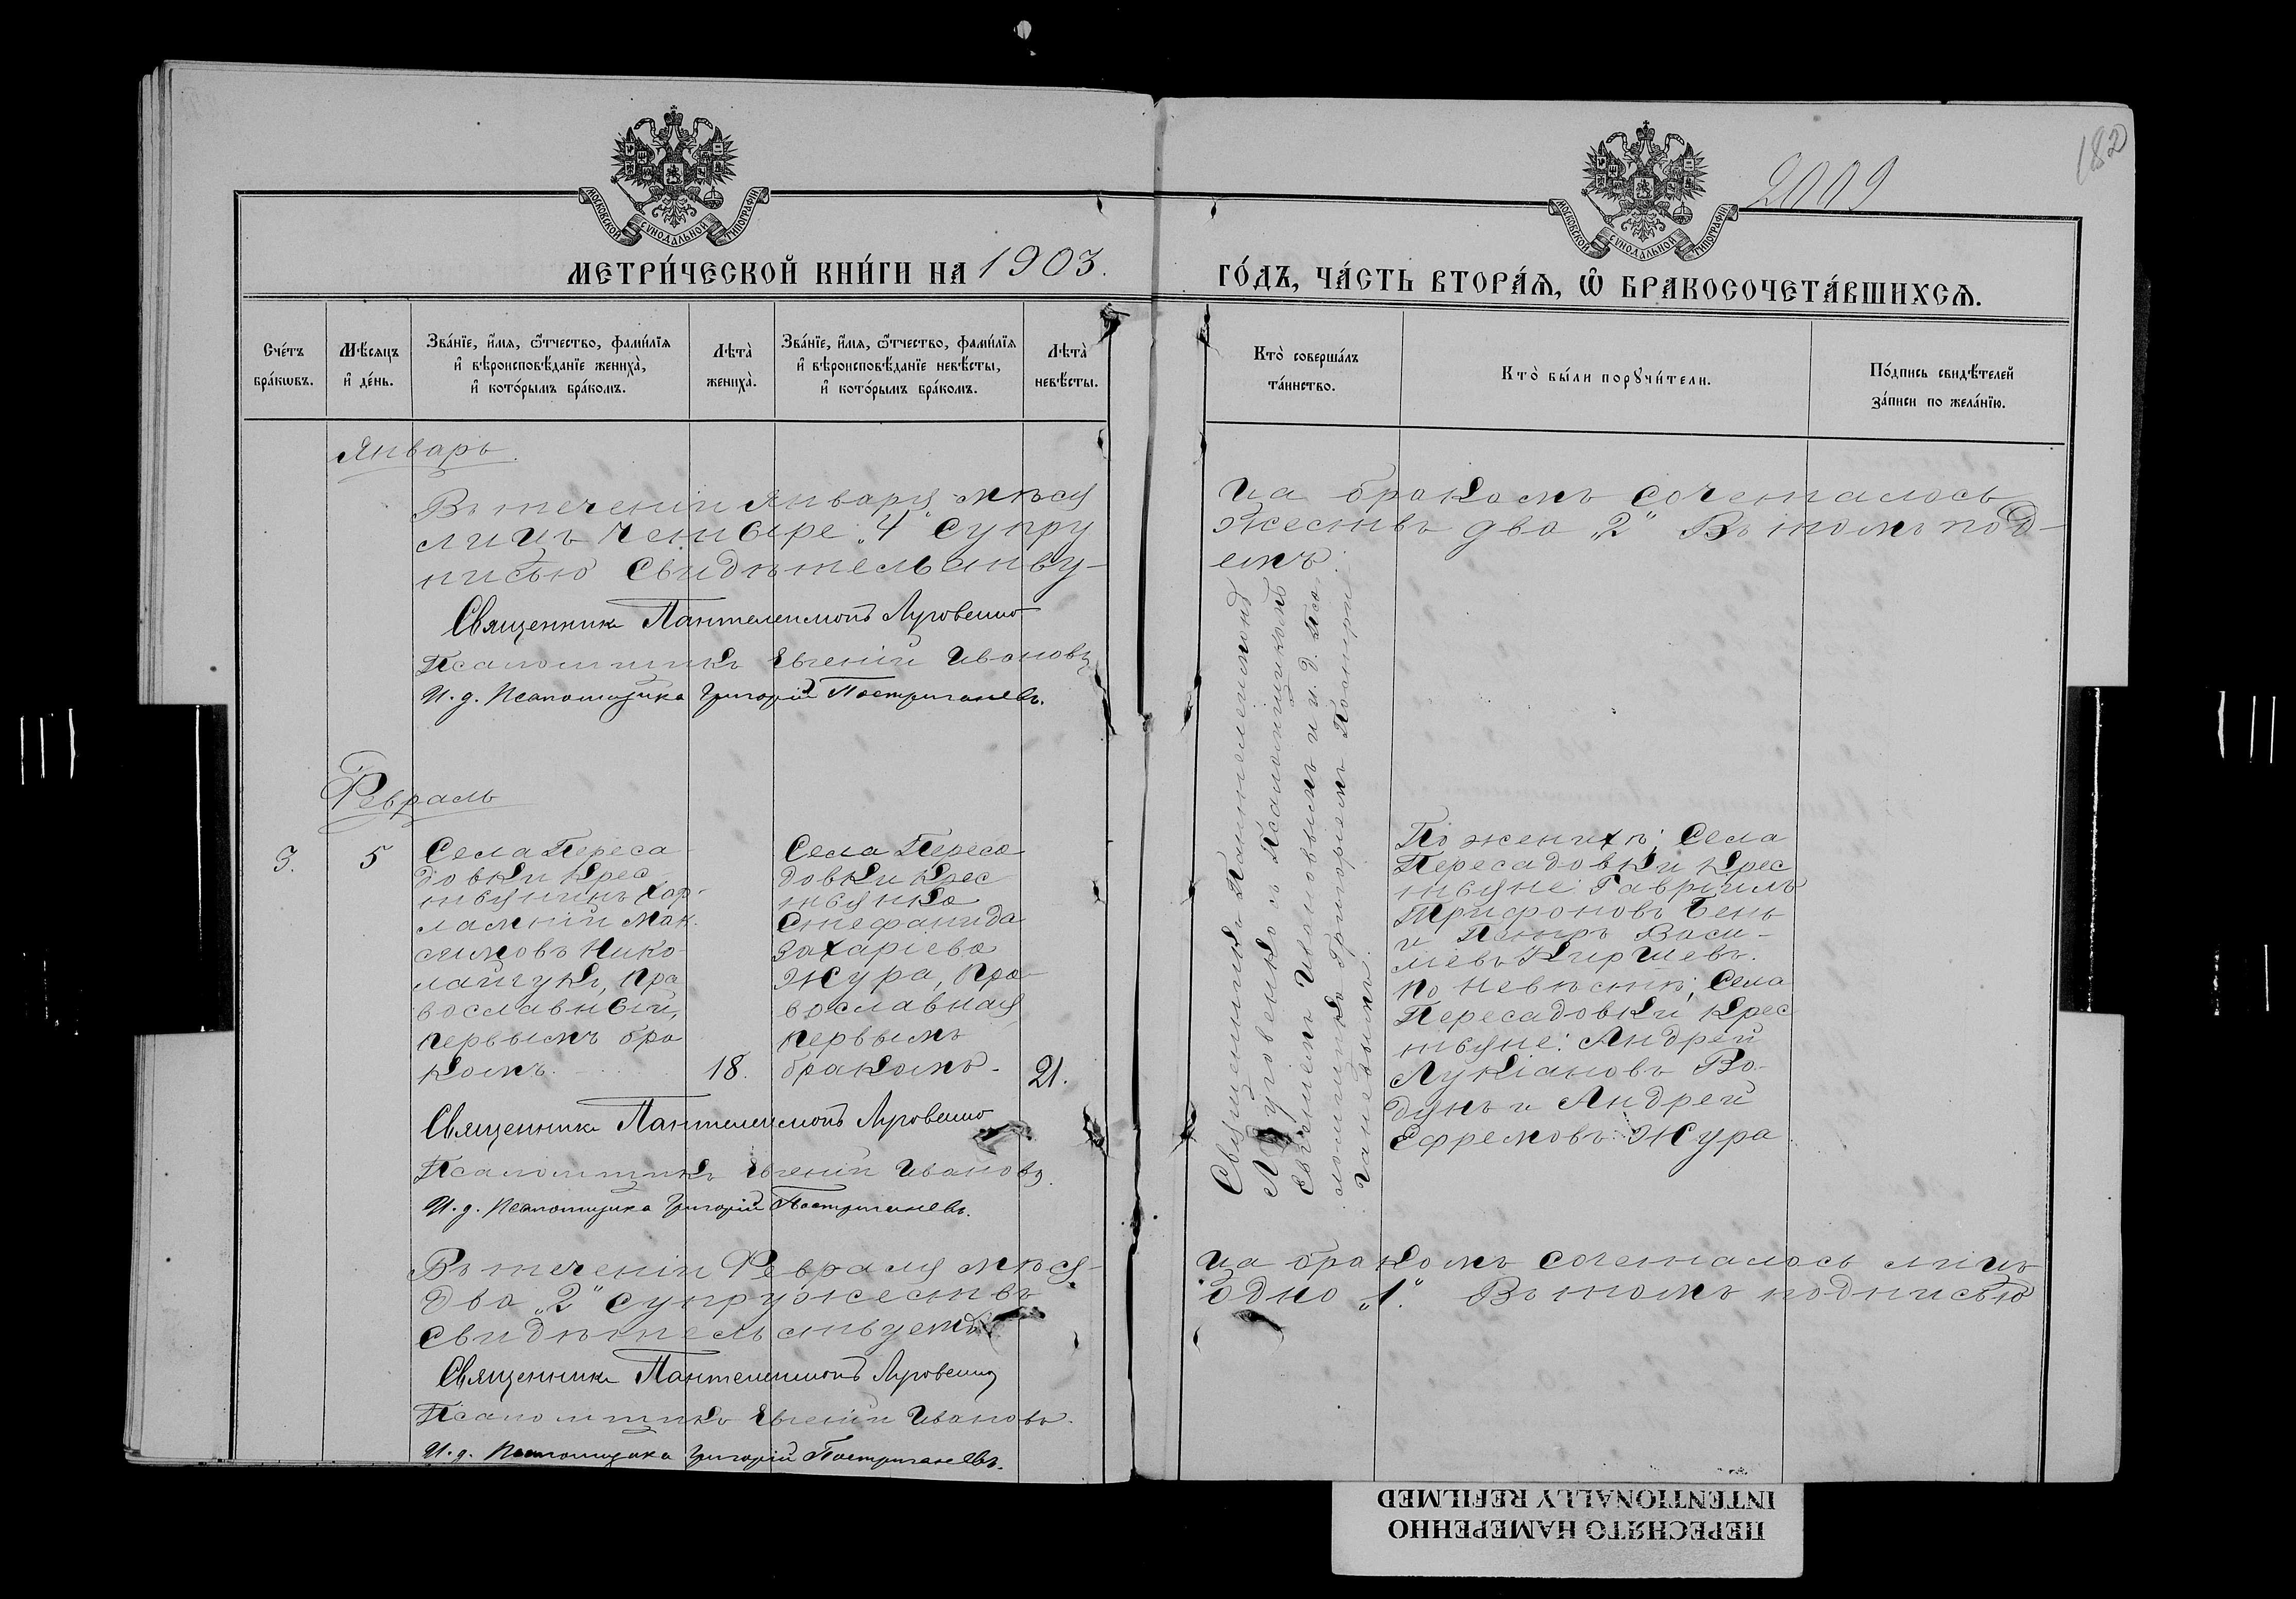 182
2009
МОСКОВСКОЙ СУНОДАЛЬНОЙ ТИПОГРАФІИ
МОСКОВСКОЙ СУНОДАЛЬНОЙ ТИПОГРАФІИ
МЕТРИ́ЧЕСКОЙ КНИ́ГИ НА 1903.
ГО́ДЪ, ЧА́СТЬ ВТОРА́Ѧ, Ѡ҆ БРАКОСОЧЕТА́ВШИХСѦ.
Сче́тъ бра́кѡвъ.
Мѣ́сяцъ и҆ де́нь.
Зва́нїе, и҆́мя, ѻ҆́тчество, фами́лїя
и҆ вѣроисповѣ́данїе жениха̀,
и҆ кото́рымъ бра́комъ.
Лѣта̀ жениха̀.
Зва́нїе, и҆́мя, ѻ҆́тчество, фами́лїя
и҆ вѣроисповѣ́данїе невѣ́сты,
и҆ кото́рымъ бра́комъ.
Лѣта̀ невѣ́сты.
Кто̀ соверша́лъ
та́инство.
Кто̀ бы́ли порꙋчи́тели.
По́дпись свидѣ́телей
за́писи по жела́нїю.
Январь.
Въ теченіи Января мѣся
ца бракомъ сочеталось
лицъ четыре „4" супру
жествъ два „2" Въ томъ под-
писью свидѣтельству-
емъ.
Священникъ Пантелеимонъ Луговенко
Псаломщикъ Евгеній Ивановъ
И. д. Псаломщика Григорій Постригачевъ.
Февраль
3.
5
Села Переса
довки крес
тьянинъ Хар-
лампій Мак
симовъ Нико
лайчукъ, пра
вославный,
первымъ бра
комъ.
18.
Села Переса
довки крес
тьянка
Стефанида
Захаріева
Жура, пра-
вославная
первымъ
бракомъ.
21.
Священникъ Пантелеимонъ
Луговенко съ Псаломщикомъ
Евгеніемъ Ивановымъ и и. д. Пса
ломщика Григоріемъ Постри
гачевымъ.
По женихѣ: Села
Пересадовки крес
тьяне: Гавріилъ
Трифоновъ Бень
и Петръ Васи-
лiевъ Киршевъ.
По невѣстѣ; Села
Пересадовки крес
тьяне: Андрей
Лукіановъ Во-
дянъ и Андрей
Ефремовъ Жура
Священникъ Пантелеимонъ Луговенко
Псаломщикъ Евгеній Ивановъ.
И. д. Псаломщика Григорій Постригачевъ.
Въ теченіи Февраля мѣся-
ца бракомъ сочеталось лицъ
два „2" супружествъ
одно „1". Въ томъ подписью
свидѣтельствуемъ
Священникъ Пантелеимонъ Луговенко
Псаломщикъ Евгеній Ивановъ.
И. д. Псаломщика Григорій Постригачевъ.
ПЕРЕСНЯТО НАМЕРЕННО
INTENTIONALLY REFILMED